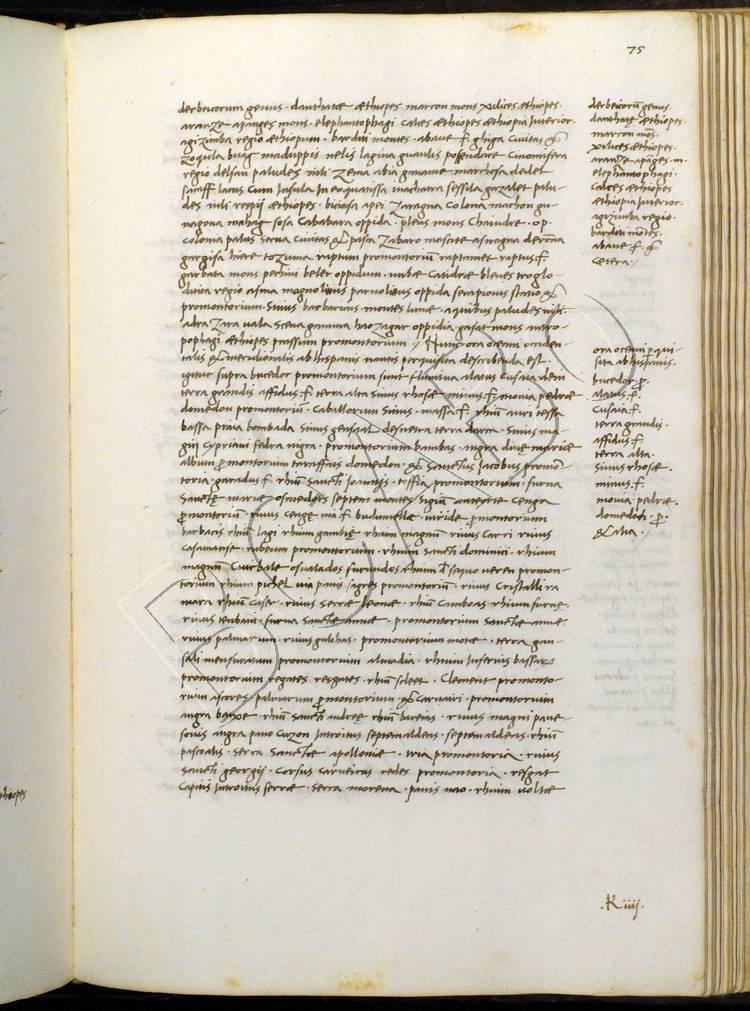 75
derbeucorum genus · danthatæ æthiopes marcon mons xilices æthiopes ·
aranzę apanges mons · elephantophagi · calces æthiopes æthiopia interior ·
agizimba regio æthiopum · barditi montes · abaue f. ghiga Ciuitas &
zogula buag maduppis nelis lagina guaulis Cinomifera
regio delsan paludes nili zena abia gamane marchosa dedet
saraff lacus Cum Insula machatra sessita gazalet palu-
des nili æthiopes · biciasa apei zaragna Colona machon gu
nagona mahag sosa Cababara oppida · pleus mons Chaindre · op.
colonia palus Ciuitas & pasta zabaro masate asmagna
gargisa hiere tozuma raptum promontoriũ raptamet raptus f.
garbata mons pechini beler oppidum · nubæ Catidræ blenes troglo-
ditica regio asma magnolitus paruolitus oppida serapionis statio &
promontorium · sinus barbaricus montes lunæ · aquibus paludes nili ·
adra zara uala scæna gamma hazagar oppidia gasat mons antro-
pophagi æthiopes prassum promontorium ·/ Nunc ora oceani occiden-
talis & meridionalis ab hispanis nautis perquisita describenda est ·
igitur supra bucedor promontorium sunt flumina alatus Cusaia
terra grandis affidus f. terra alta sinus rhosæ minus f. moua pedræ
domedou promontoriũ · Caballorum sinus · massa f. rhiũ auri tessa
bassa praia bombada sinus gensaat desuetra terra darca · sinus ma-
gni Cypriani fedra nigra · promontorium bambas · nigra duæ mariæ
album promontorium taraffus domedon · & sanctus Jacobus promõ
toria · garadus f. rhiũ sancti Joannis · toffia promontorium · furna
sanctę mariæ osmedõs septem montes signũ antepte Cenga
promontoriũ · riuus cengę uia f. budumellæ uiride promontorium
barbacis rhiũ lagi rhium gambię rhium magnũ riuus Carri riuus
Casamansæ · rubeum promontorium · rhium sancti dominici · rhium
magnũ Curbale osualados furundos rhium seguo uerea promon-
torium rhium pichel uia panis sagres promontoriũ · riuus Cristalli ra
mara rhiũ case · riuus serræ leonæ · rhiũ Camboas rhium furnę ·
riuus teubam · furna sanctæ annæ · promontorium sanctæ annæ
riuus palmarum · riuus gulihas · promontorium motæ · terra gau-
sali mensuratum promontorium almadia · rhium Infernis bassar
promontorium regates resgates · rhiũ scleet · Clement promonto-
rium asores palmarum promontorium & Caruari · promontorium
nigra baixæ · rhiũ sancti andreę rhiũ bareias · riuus magni paue-
sonis nigra pauo Cuzon Introitus septemaldeas · septemaldeas rhiũ
pascalis · serra sanctæ apolloniæ · tria promontoria · riuus
sancti georgij · Corsus carueirus redes promontoria · resgat
Capitis Introitus serræ · serra morena · panis nao · rhium uoltæ
derbeucorũ genus ·
danthatę æthiopes ·
marcon mõs
xilices æthiopes ·
aranzę apãges m ·
elephantophagi ·
calces æthiopes
æthiopia Interior ·
agizimba regio ·
barditi mõtes ·
abaue f. &
Cetera ·/
ora oceani pqui-
sita ab hispanis ·
bucedor p̃
alatus f.
Cusaia f.
terra grandis ·
affidus f.
terra alta ·
sinus rhosæ ·
minus f.
moua pedræ ·
domedõ p̃
& Alia ·
thiopes
· K iiij ·